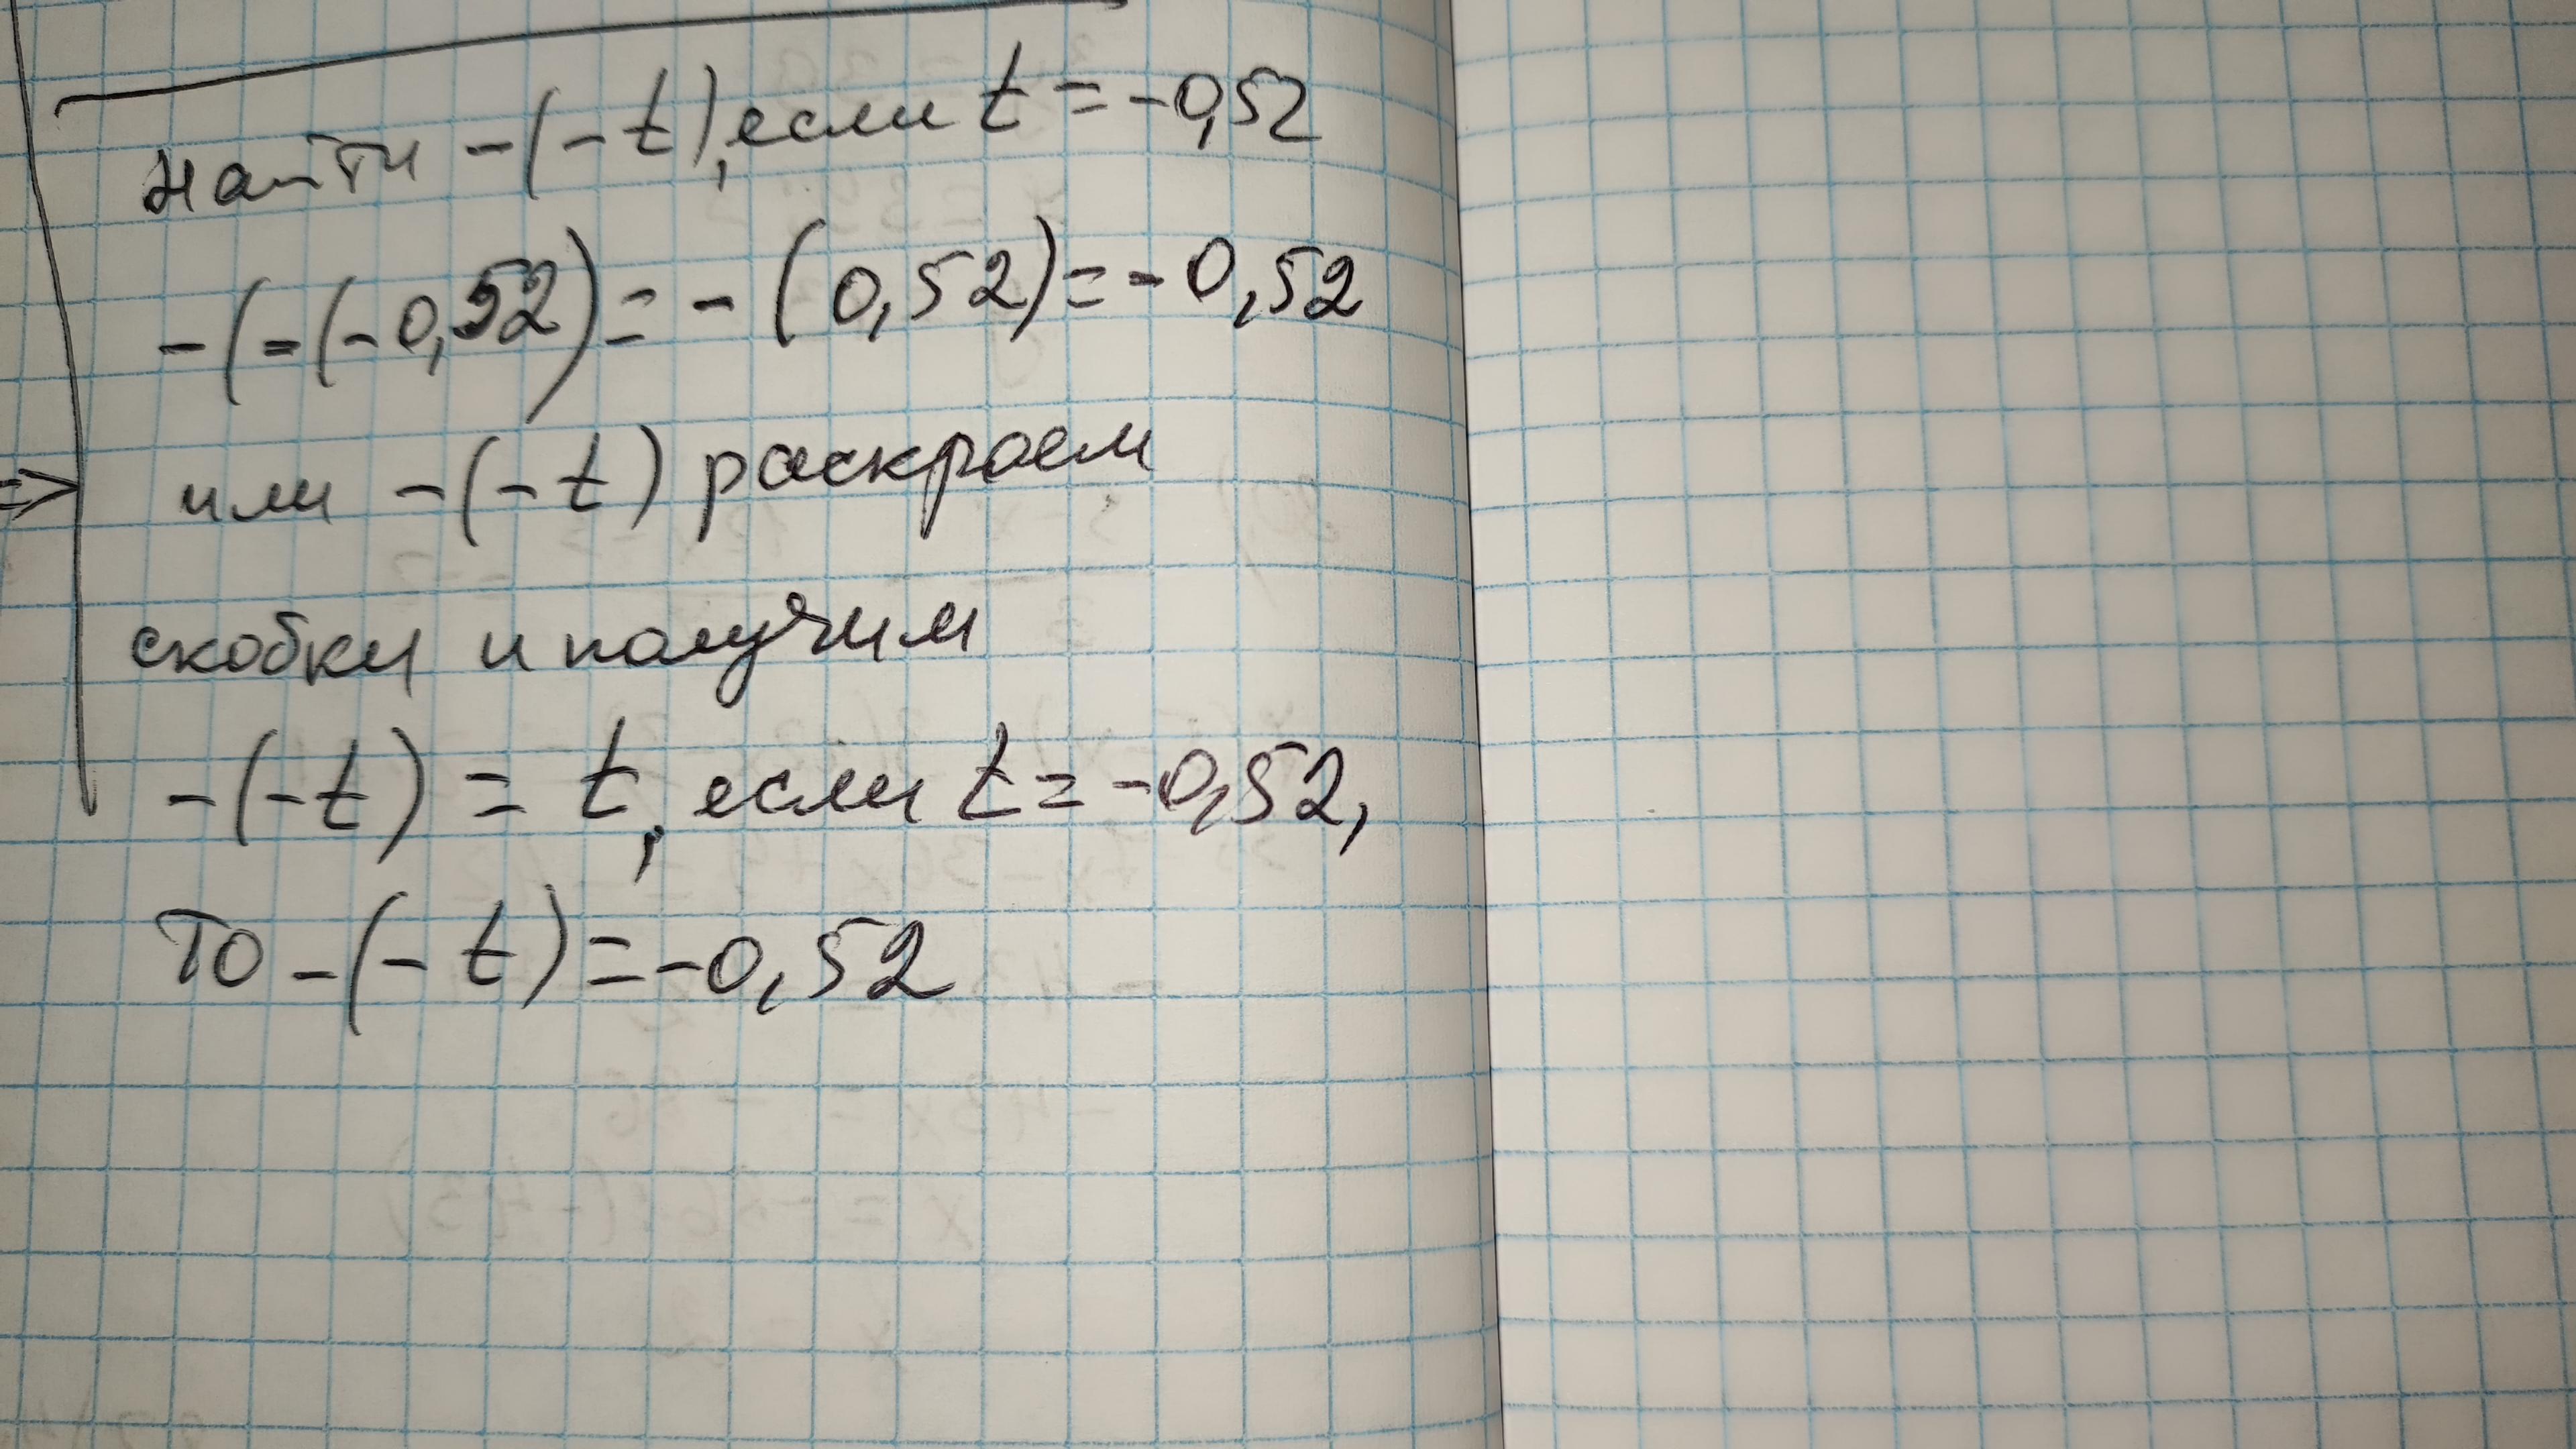 найти -(-t), если t = -0,52
-(-(-0,52) = -(0,52) = -0,52
=> или -(-t) раскроем
скобки и получим
-(-t) = t, если t = -0,52,
то -(-t) = -0,52